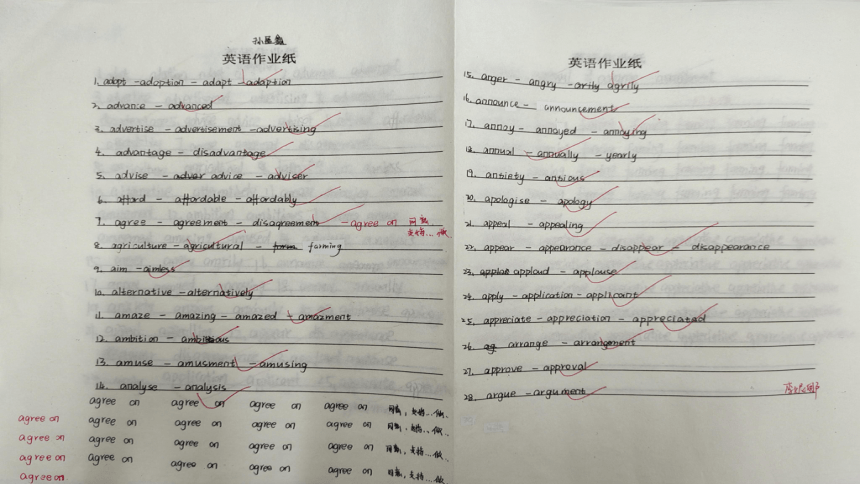 英语作业纸
1. adopt - adoption - adapt - adaption
2. advance - advanced
3. advertise - advertisement - advertising
4. advantage - disadvantage
5. advise - advice - adviser
6. afford - affordable - affordably
7. agree - agreement - disagreement - agree on 同意 支持...做
8. agriculture - agricultural - farming
9. aim - aimless
10. alternative - alternatively
11. amaze - amazing - amazed - amazment
12. ambition - ambitious
13. amuse - amusment - amusing
14. analyse - analysis
agree on agree on agree on agree on 同意,支持...做
agree on agree on agree on agree on agree on 同意,支持...做
agree on agree on agree on agree on agree on 同意,支持...做
agree on agree on agree on agree on agree on 同意,支持...做
agree on
英语作业纸
15. anger - angry - artly agrily
16. announce - announcement
17. annoy - annoyed - annoying
18. annual - annually - yearly
19. antiety - antious
20. apologise - apology
21. appeal - appealing
22. appear - appearance - disappear - disappearance
23. applaud - applouse
24. apply - application - applicant
25. appreciate - appreciation - appreciated
26. arrange - arrangement
27. approve - approval
28. argue - argument